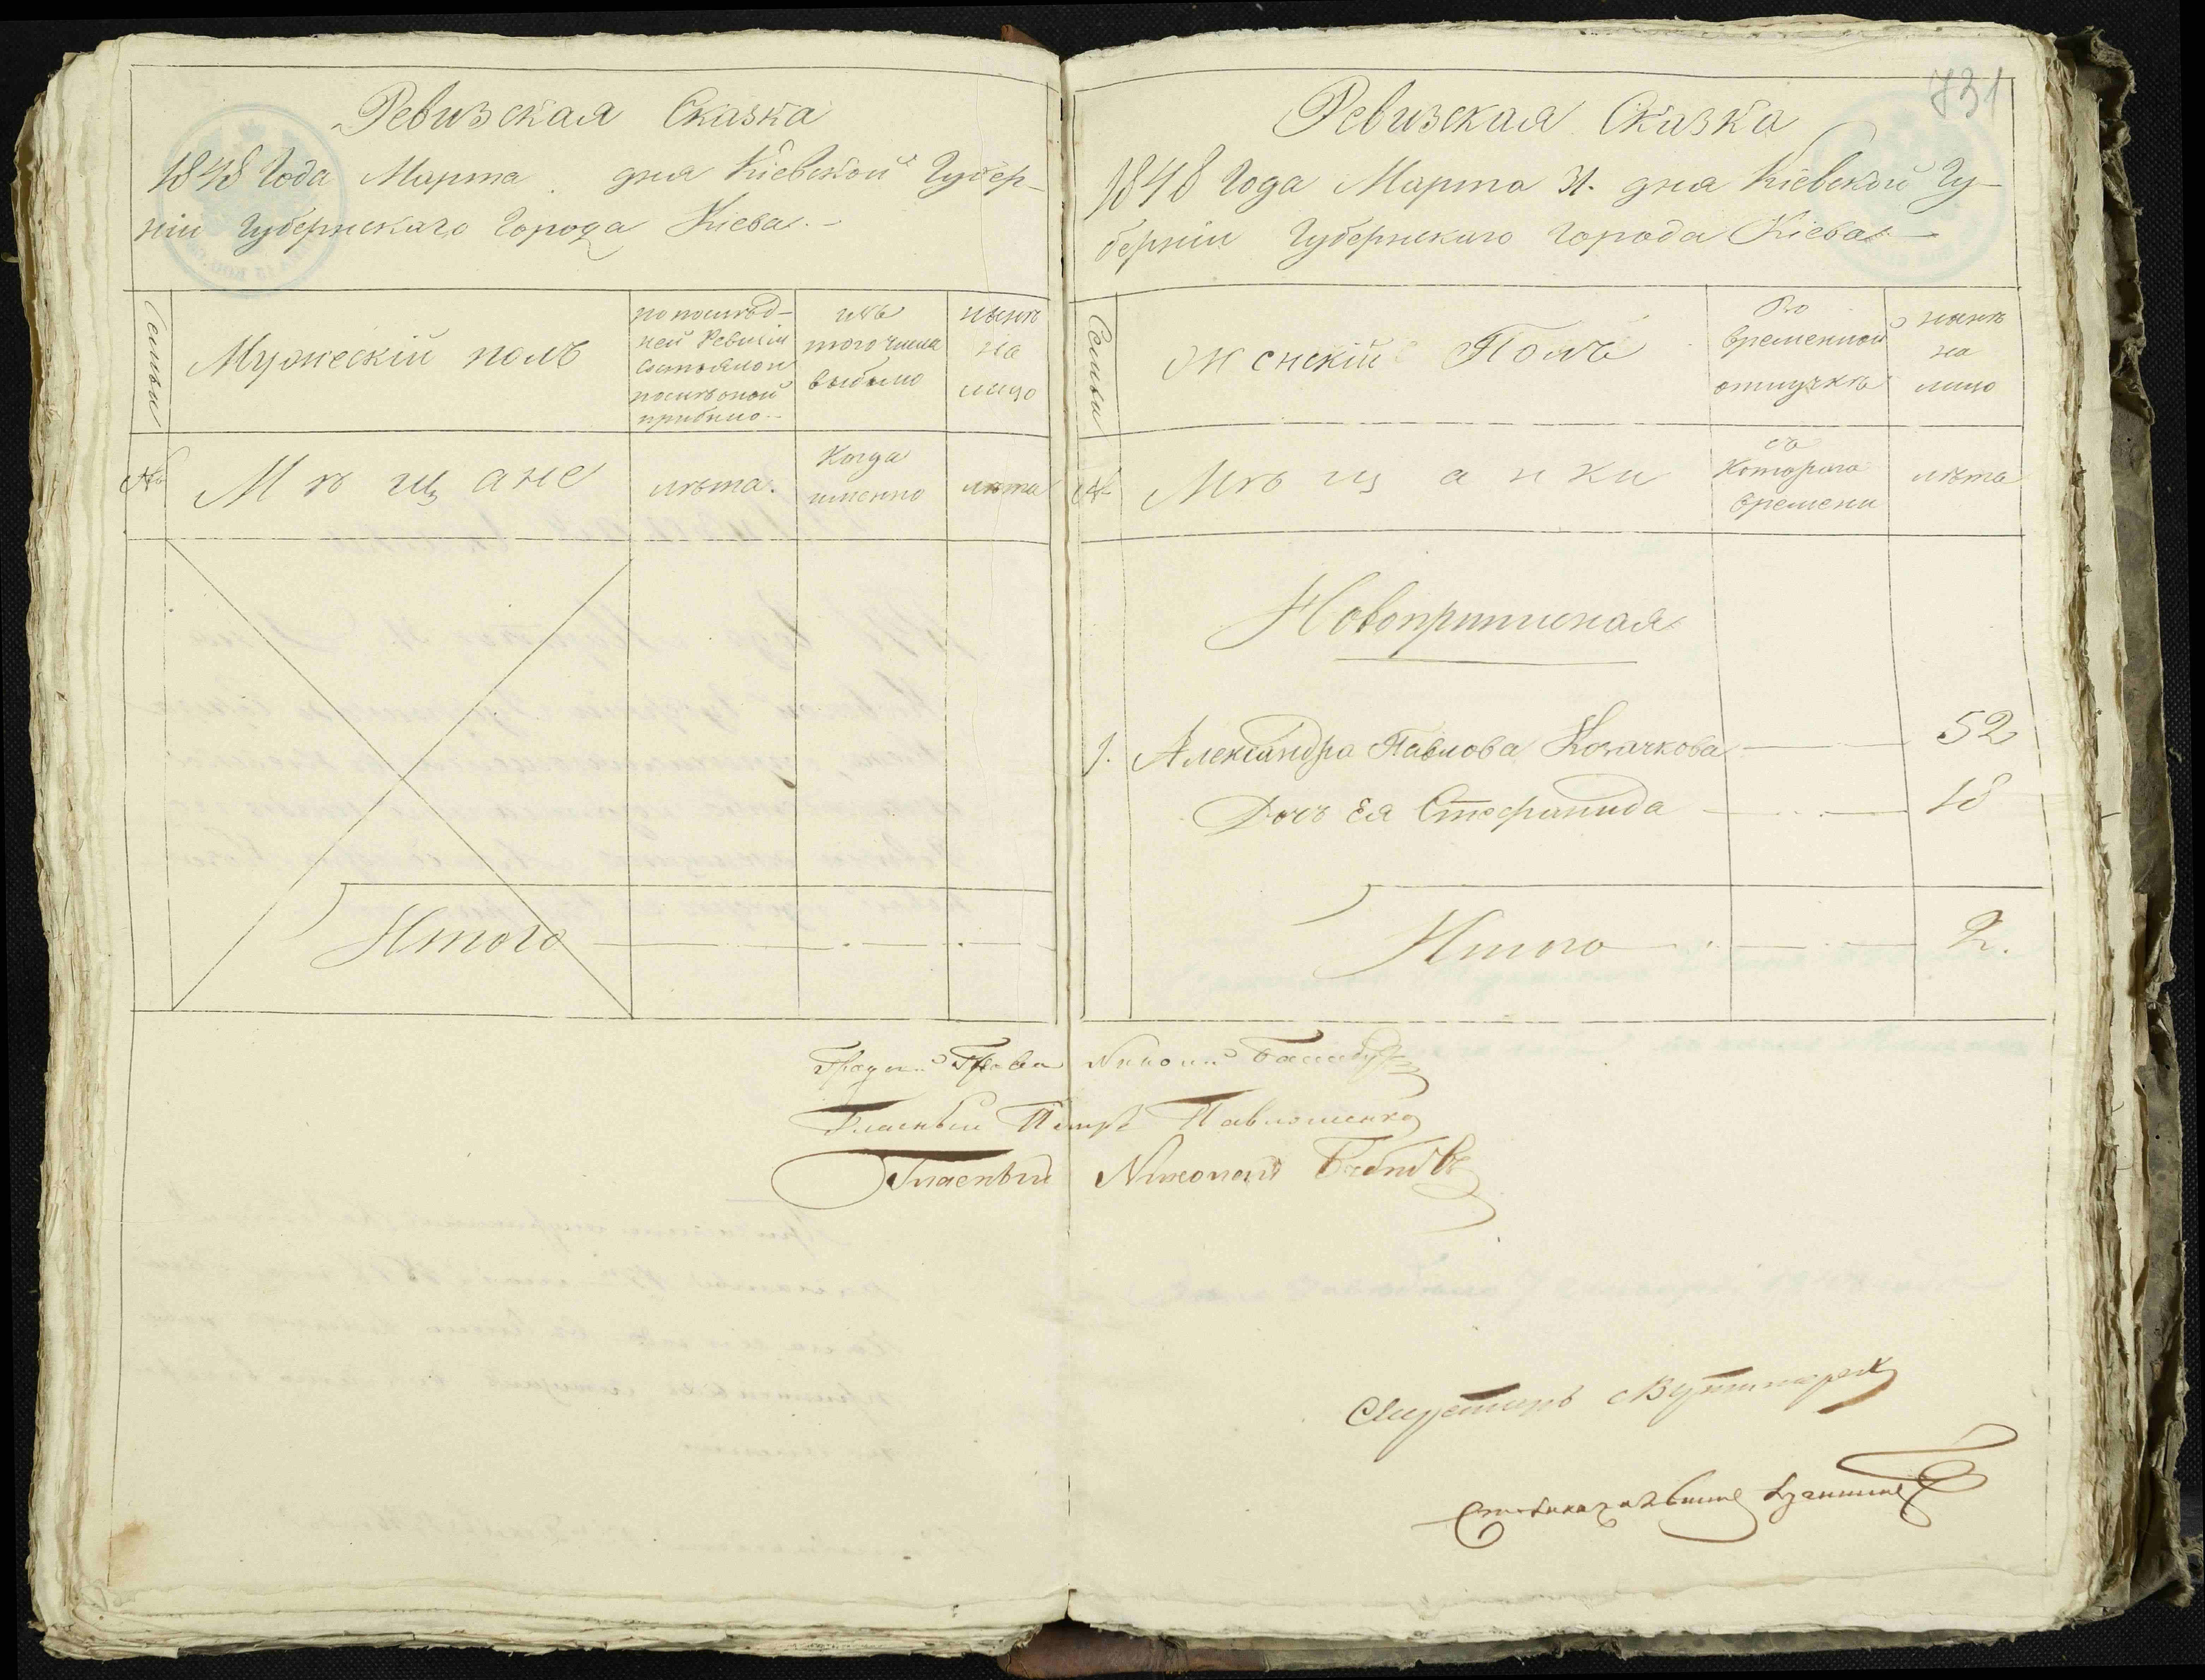 Ревизская Сказка
1848 Года Марта . дня Кіевской Губер-
ніи Губернскаго Города Кіева.-
Семьи
Мужескій полъ
по послѣд-
ней Ревизіи
состояло и
послѣ оной
прибыло.-
изъ
того числа
выбыло
нынѣ
на
лицо
№
Мѣщане
лѣта.
Когда
именно
лѣта
Итого
731
Ревизская Сказка
1848 Года Марта 31. дня Кіевской Гу-
берніи Губернскаго Города Кіева.-
Семьи
Женскій Полъ
Во
временной
отлучкѣ
нынѣ
на
лицо
№
Мѣщанки
съ
Котораго
времени
лѣта
Новоприписная
1. Александра Павлова Козачкова 52
Дочь Ея Стефанида 18
Итого 2.
Глава
Гласный Петръ Павлюшенко
Гласный Николай